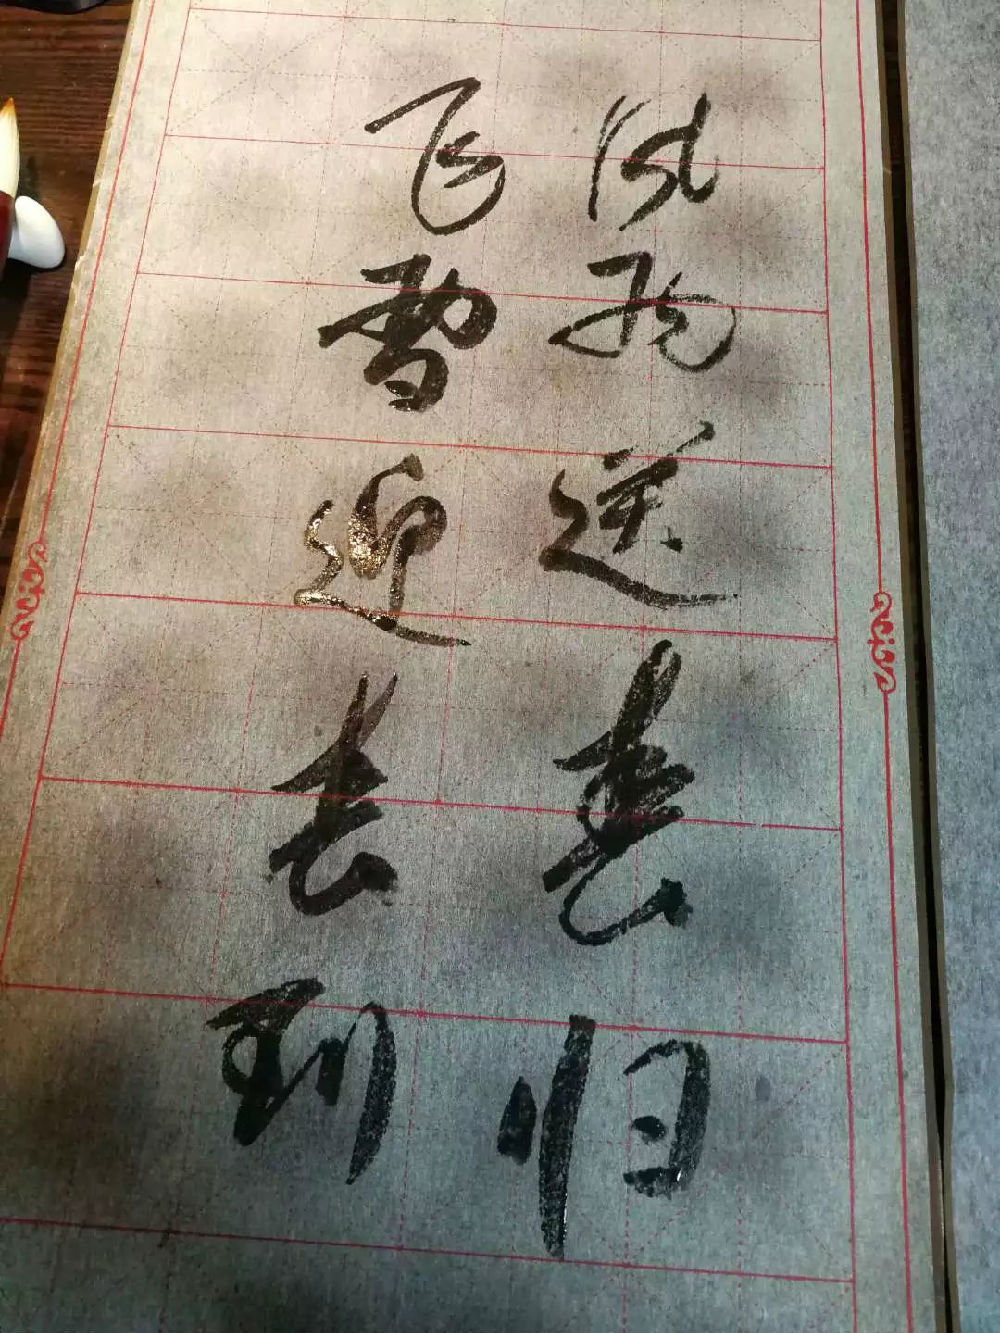 风雨送春归
飞雪迎春到